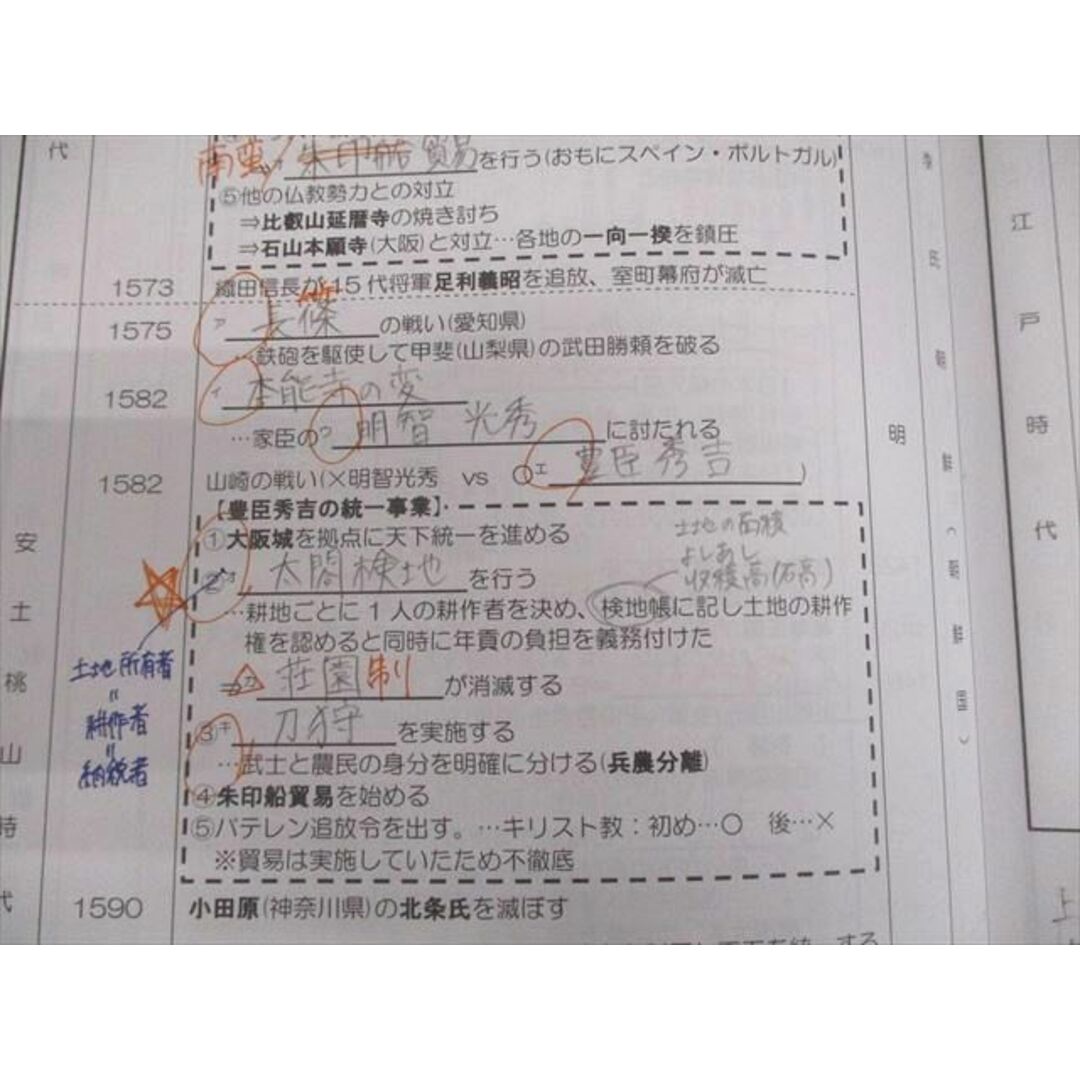 代
南蛮 朱印船 貿易を行う(おもにスペイン・ポルトガル)
⑤他の仏教勢力との対立
⇒比叡山延暦寺の焼き討ち
⇒石山本願寺(大阪)と対立…各地の一向一揆を鎮圧
1573 織田信長が15代将軍足利義昭を追放、室町幕府が滅亡
1575 ア 長篠 の戦い(愛知県)
…鉄砲を駆使して甲斐(山梨県)の武田勝頼を破る
1582 イ 本能寺の変
…家臣のウ 明智 光秀 に討たれる
1582 山崎の戦い(×明智光秀 vs ○エ 豊臣秀吉 )
【豊臣秀吉の統一事業】
①大阪城を拠点に天下統一を進める
②オ 太閤検地 を行う
土地の面積
よしあし
収穫高(石高)
…耕地ごとに1人の耕作者を決め、検地帳に記し土地の耕作
権を認めると同時に年貢の負担を義務付けた
⇒カ 荘園制 が消滅する
③キ 刀狩 を実施する
…武士と農民の身分を明確に分ける(兵農分離)
④朱印船貿易を始める
⑤バテレン追放令を出す。…キリスト教：初め…○ 後…×
※貿易は実施していたため不徹底
1590 小田原(神奈川県)の北条氏を滅ぼす
土地所有者
=
耕作者
=
納税者
安土桃山時代
明
李氏朝鮮(朝鮮国)
江戸時代
上